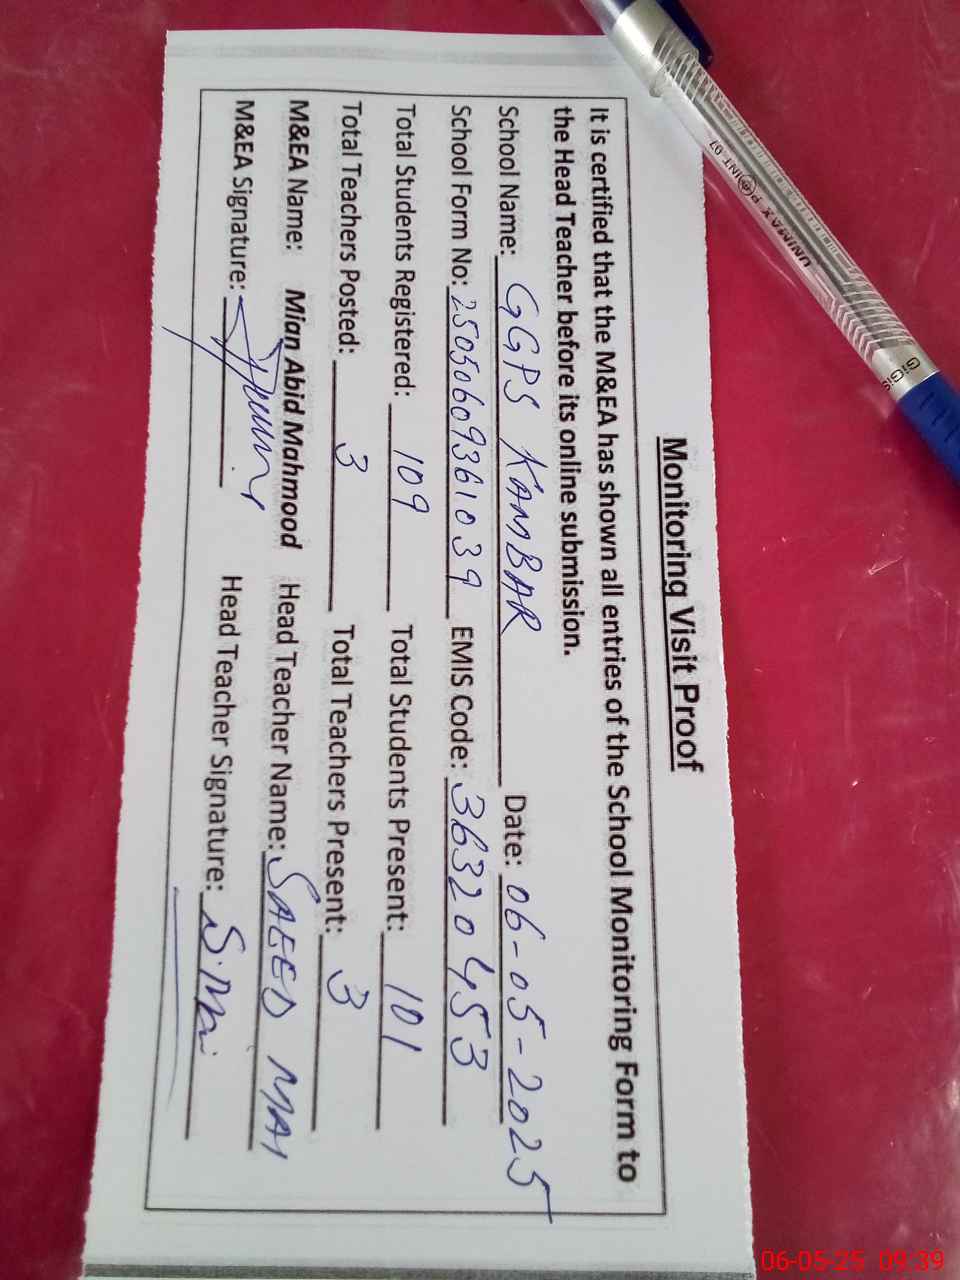 Monitoring Visit Proof
It is certified that the M&EA has shown all entries of the School Monitoring Form to
the Head Teacher before its online submission.
School Name: GGPS KAMBAR Date: 06-05-2025
School Form No: 25050609361039 EMIS Code: 36320453
Total Students Registered: 109 Total Students Present: 101
Total Teachers Posted: 3 Total Teachers Present: 3
M&EA Name: Mian Abid Mahmood Head Teacher Name: SAEED MAI
M&EA Signature: Head Teacher Signature: S.Mai
UNIMAX POINT 07
GIGIS
06-05-25 09:39